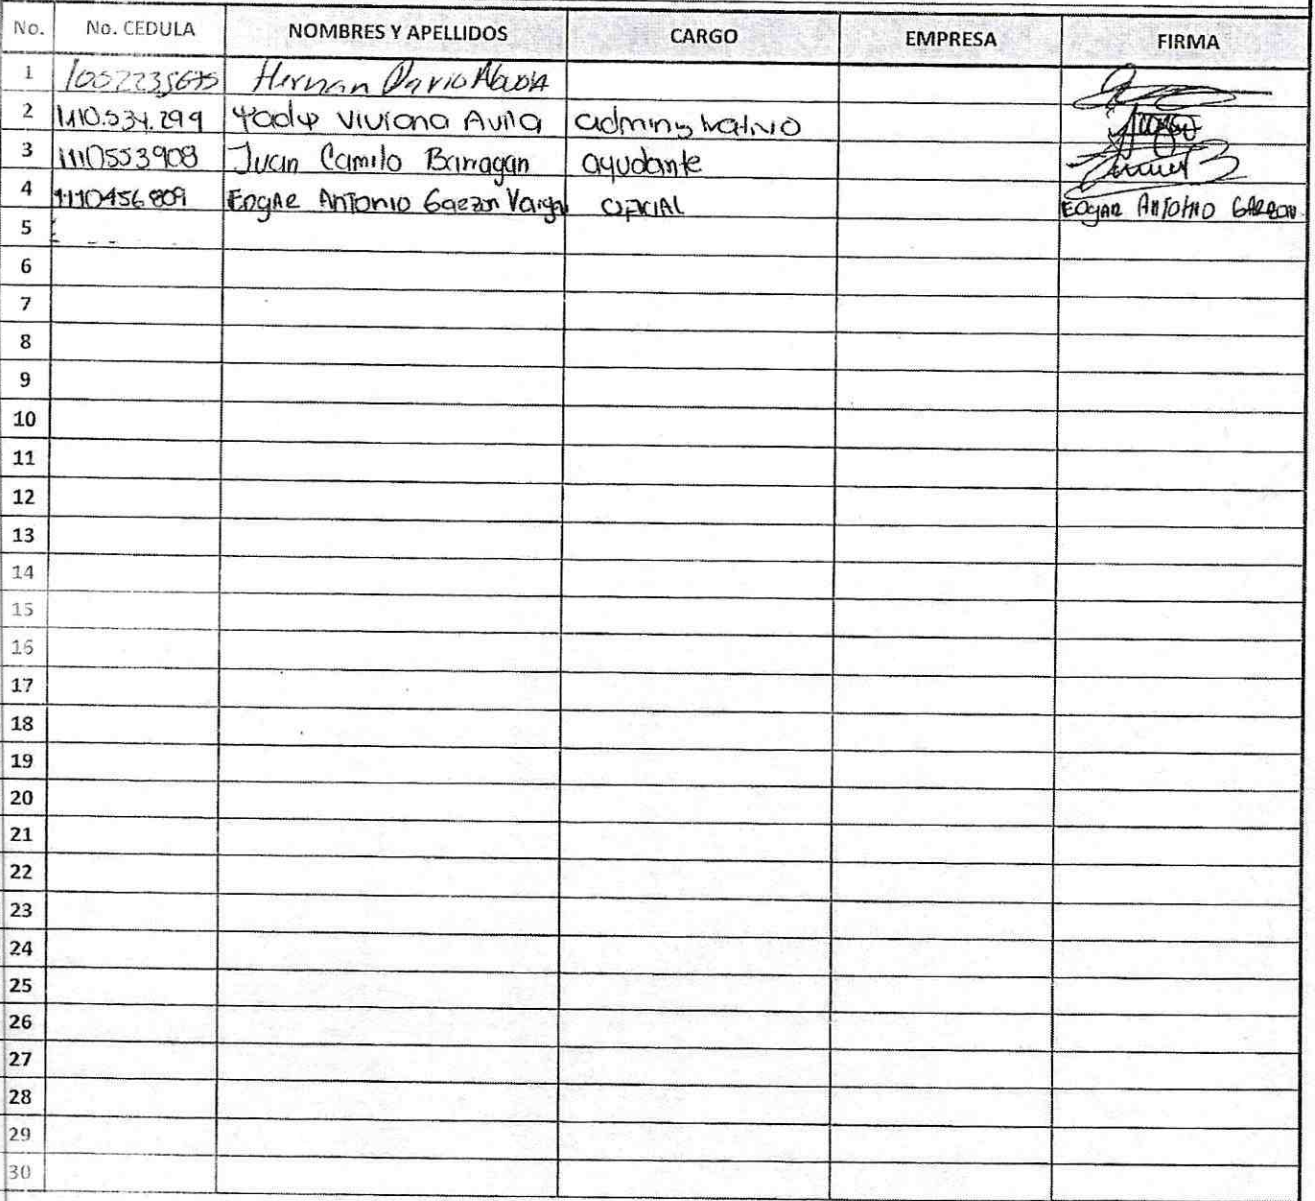 No. No. CEDULA NOMBRES Y APELLIDOS CARGO EMPRESA FIRMA
1 Hernan Dario
2 1110.534.299 Yady Viviana Avila administrativo
3 1110553908 Juan Camilo Barragan ayudante
4 1110456809 EDGAR ANTONIO Garzon Vargas OFICIAL EDGAR ANTONIO GARZON
5
6
7
8
9
10
11
12
13
14
15
16
17
18
19
20
21
22
23
24
25
26
27
28
29
30